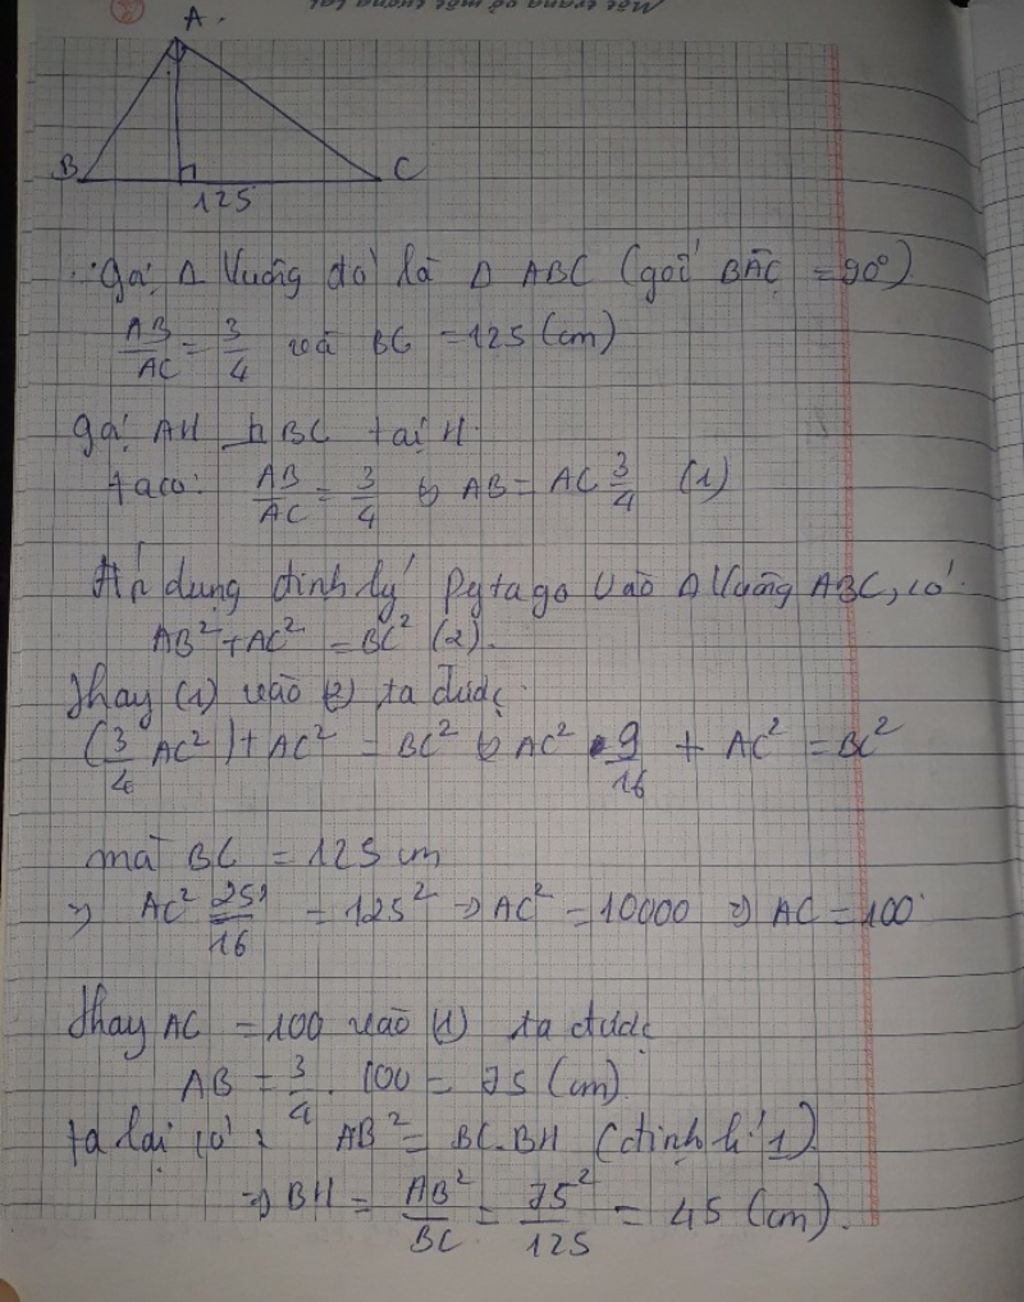 Một trang vở một tương lai
A.
B
C
125
gọi Δ Vuông đó là Δ ABC (gọi BAC = 90°)
AB/AC = 3/4 và BC = 125 (cm)
gọi AH ⊥ BC tại H.
ta có: AB/AC = 3/4 ⇔ AB = AC 3/4 (1)
Áp dụng định lý Pytago Vào Δ Vuông ABC, có
AB² + AC² = BC² (2).
Thay (1) vào (2) ta được
(3/4 AC²) + AC² = BC² ⇔ AC² . 9/16 + AC² = BC²
mà BC = 125 cm
⇒ AC² 25/16 = 125² ⇒ AC² = 10000 ⇒ AC = 100
Thay AC = 100 vào (1) ta được
AB = 3/4 . 100 = 75 (cm)
ta lại có : AB² = BC.BH (định lí 1)
⇒ BH = AB²/BC = 75²/125 = 45 (cm).